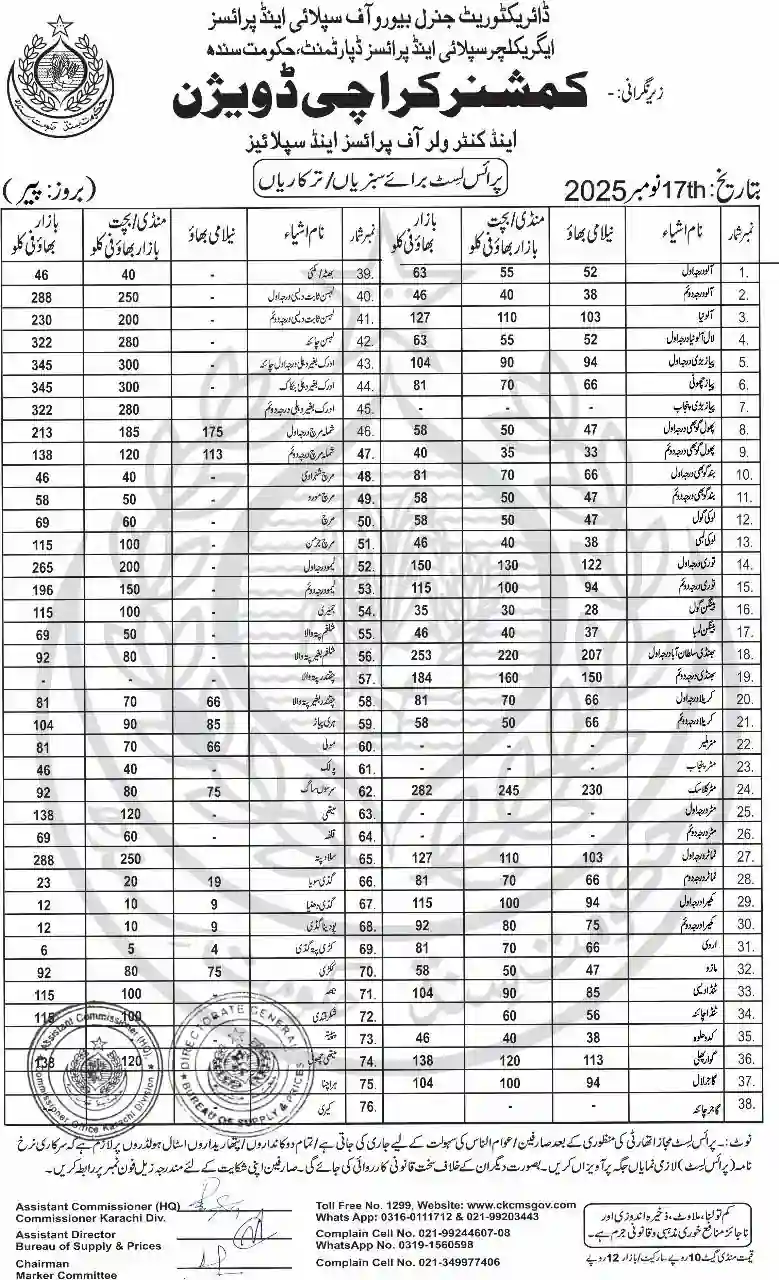 ڈائریکٹوریٹ جنرل بیورو آف سپلائی اینڈ پرائسز
ایگریکلچر سپلائی اینڈ پرائسز ڈپارٹمنٹ، حکومت سندھ
زیرنگرانی:-
کمشنر کراچی ڈویژن
اینڈ کنٹرولر آف پرائسز اینڈ سپلائیز
پرائس لسٹ برائے سبزیاں/ترکاریاں
بتاریخ: 17th نومبر 2025
(بروز: پیر)
نمبرشمار نام اشیاء نیلامی بھاؤ منڈی/بچت بازار بھاؤ فی کلو بازار بھاؤ فی کلو نمبرشمار نام اشیاء نیلامی بھاؤ منڈی/بچت بازار بھاؤ فی کلو بازار بھاؤ فی کلو
1. آلو درجہ اول 52 55 63 39. بھٹہ/مکئی - 40 46
2. آلو درجہ دوئم 38 40 46 40. لہسن ثابت دیسی درجہ اول - 250 288
3. آلو نیا 103 110 127 41. لہسن ثابت دیسی درجہ دوئم - 200 230
4. لال آلو نیا درجہ اول 52 55 63 42. لہسن چائنہ - 280 322
5. پیاز بڑی درجہ اول 94 90 104 43. ادرک بغیر دہلی درجہ اول چائنہ - 300 345
6. پیاز چھوٹی 66 70 81 44. ادرک بغیر دہلی بنکاک - 300 345
7. پیاز بڑی پنجاب - - - 45. ادرک بغیر دہلی درجہ دوئم 280 322
8. پھول گوبھی درجہ اول 47 50 58 46. شملہ مرچ درجہ اول 175 185 213
9. پھول گوبھی درجہ دوئم 33 35 40 47. شملہ مرچ درجہ دوئم 113 120 138
10. بند گوبھی درجہ اول 66 70 81 48. مرچ شہزادی - 40 46
11. بند گوبھی درجہ دوئم 47 50 58 49. مرچ - 50 58
12. لوکی گول 47 50 58 50. مرچ - 60 69
13. لوکی لمبی 38 40 46 51. مرچ جرمن - 100 115
14. توری درجہ اول 122 130 150 52. لیمو درجہ اول - 200 265
15. توری درجہ دوئم 94 100 115 53. لیمو درجہ دوئم - 150 196
16. بینگن گول 28 30 35 54. - 100 115
17. بینگن لمبا 37 40 46 55. شلغم پتہ والا - 50 69
18. بھنڈی سلطان آباد درجہ اول 207 220 253 56. شلغم بغیر پتہ والا - 80 92
19. بھنڈی درجہ دوئم 150 160 184 57. چقندر پتہ والا - - -
20. کریلا درجہ اول 66 70 81 58. چقندر بغیر پتہ والا 66 70 81
21. کریلا درجہ دوئم 66 50 58 59. ہری پیاز 85 90 104
22. مٹر ملیر - - - 60. مولی 66 70 81
23. مٹر پنجاب - - - 61. پالک - 40 46
24. مٹر کلاسک 230 245 282 62. سرسوں ساگ 75 80 92
25. مٹر درجہ اول - - - 63. میتھی - 120 138
26. مٹر درجہ دوئم - - - 64. قلفہ - 60 69
27. ٹماٹر درجہ اول 103 110 127 65. سلاد پتہ - 250 288
28. ٹماٹر درجہ دوئم 66 70 81 66. گڈی سویا 19 20 23
29. کھیرا درجہ اول 94 100 115 67. گڈی دھنیا 9 10 12
30. کھیرا درجہ دوئم 75 80 92 68. پودینا گڈی 9 10 12
31. اروی 66 70 81 69. کڑی پتہ گڈی 4 5 6
32. مارو 47 50 58 70. ککڑی 75 80 92
33. ٹنڈا دیسی 85 90 104 71. 100 115
34. ٹنڈا چائنہ 56 60 72. شکرقندی 100 115
35. کدو حلوہ 38 40 46 73.
36. گوار پھلی 113 120 138 74. میتھی چھوٹی 120 138
37. گاجر لال 94 100 104 75. ہرا چنا
38. گاجر چائنہ - - 76. کیری
Assistant Commissioner (HQ)
Commissioner Office Karachi Division
DIRECTORATE GENERAL
BUREAU OF SUPPLY & PRICES
نوٹ:- پرائس لسٹ مجاز اتھارٹی کی منظوری کے بعد صارفین/عوام الناس کی سہولت کے لیے جاری کی جاتی ہے/تمام دوکانداروں/پتھاریداروں اسٹال ہولڈروں پر لازم ہے کہ سرکاری نرخ
نامہ (پرائس لسٹ) لازمی نمایاں جگہ پر آویزاں کریں۔ بصورت دیگر ان کے خلاف سخت قانونی کارروائی کی جائے گی۔ صارفین اپنی شکایت کے لئے مندرجہ زیل فون نمبر پر رابطہ کریں۔
Assistant Commissioner (HQ)
Commissioner Karachi Div.
Assistant Director
Bureau of Supply & Prices
Chairman
Marker Committee
Toll Free No. 1299, Website: www.ckcmsgov.com
Whats App: 0316-0111712 & 021-99203443
Complain Cell No. 021-99244607-08
WhatsApp No. 0319-1560598
Complain Cell No. 021-349977406
کم تولنا، ملاوٹ، ذخیرہ اندوزی اور
ناجائز منافع خوری مذہبی و قانونی جرم ہے۔
قیمت منڈی گیٹ 10 روپے مارکیٹ/بازار 12 روپے